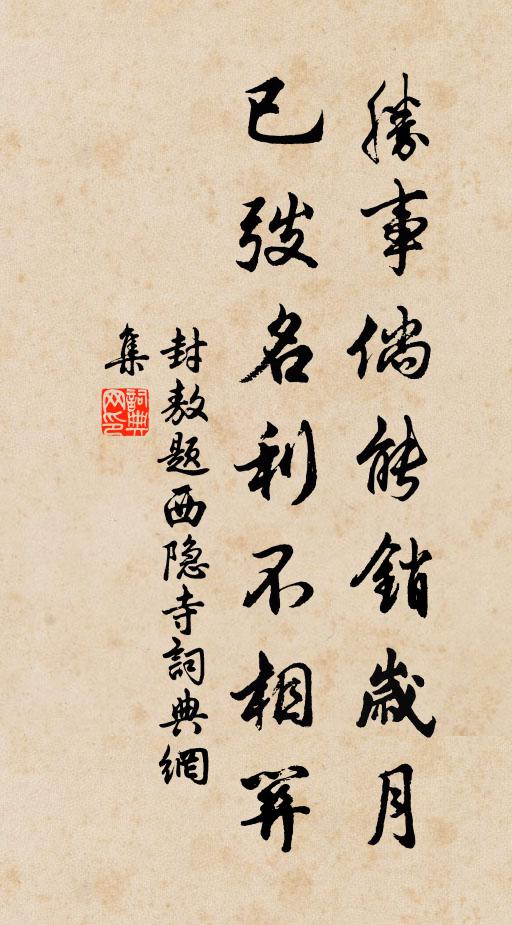 勝事倘能銷歲月
已拚名利不相關
封敖題西隐寺詞典網
集
詞典网印